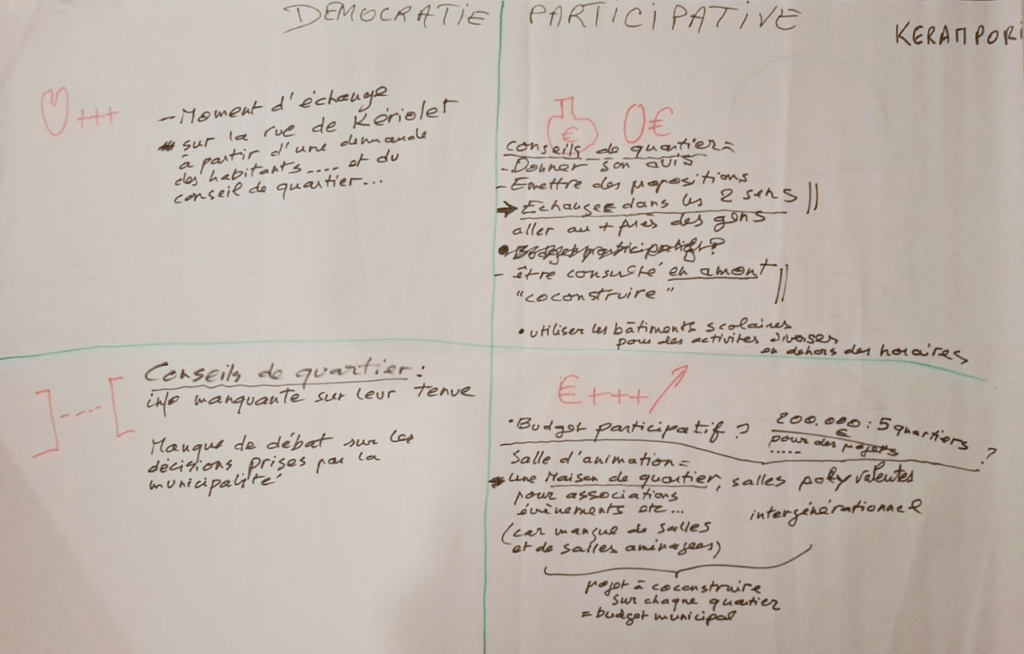 DEMOCRATIE PARTICIPATIVE
KERAMPORI
+++
- Moment d'échange
sur la rue de Kériolet
à partir d'une demande
des habitants.... et du
conseil de quartier...
€ 0€
conseils de quartier =
- Donner son avis
- Emettre des propositions
→ Echanger dans les 2 sens
aller au + près des gens
• Budget participatif ?
- être consulté en amont
"coconstruire"
• utiliser les bâtiments scolaires
pour des activités diverses
en dehors des horaires
] ---- [
Conseils de quartier :
info manquante sur leur tenue
Manque de débat sur les
décisions prises par la
municipalité
€+++
• Budget participatif ? 200.000 : 5 quartiers
€
pour des projets
..... ?
Salle d'animation =
une Maison de quartier, salles polyvalentes
pour associations
évènements etc... intergénérationnel
(car manque de salles
et de salles aménagées)
projet à coconstruire
sur chaque quartier
= budget municipal